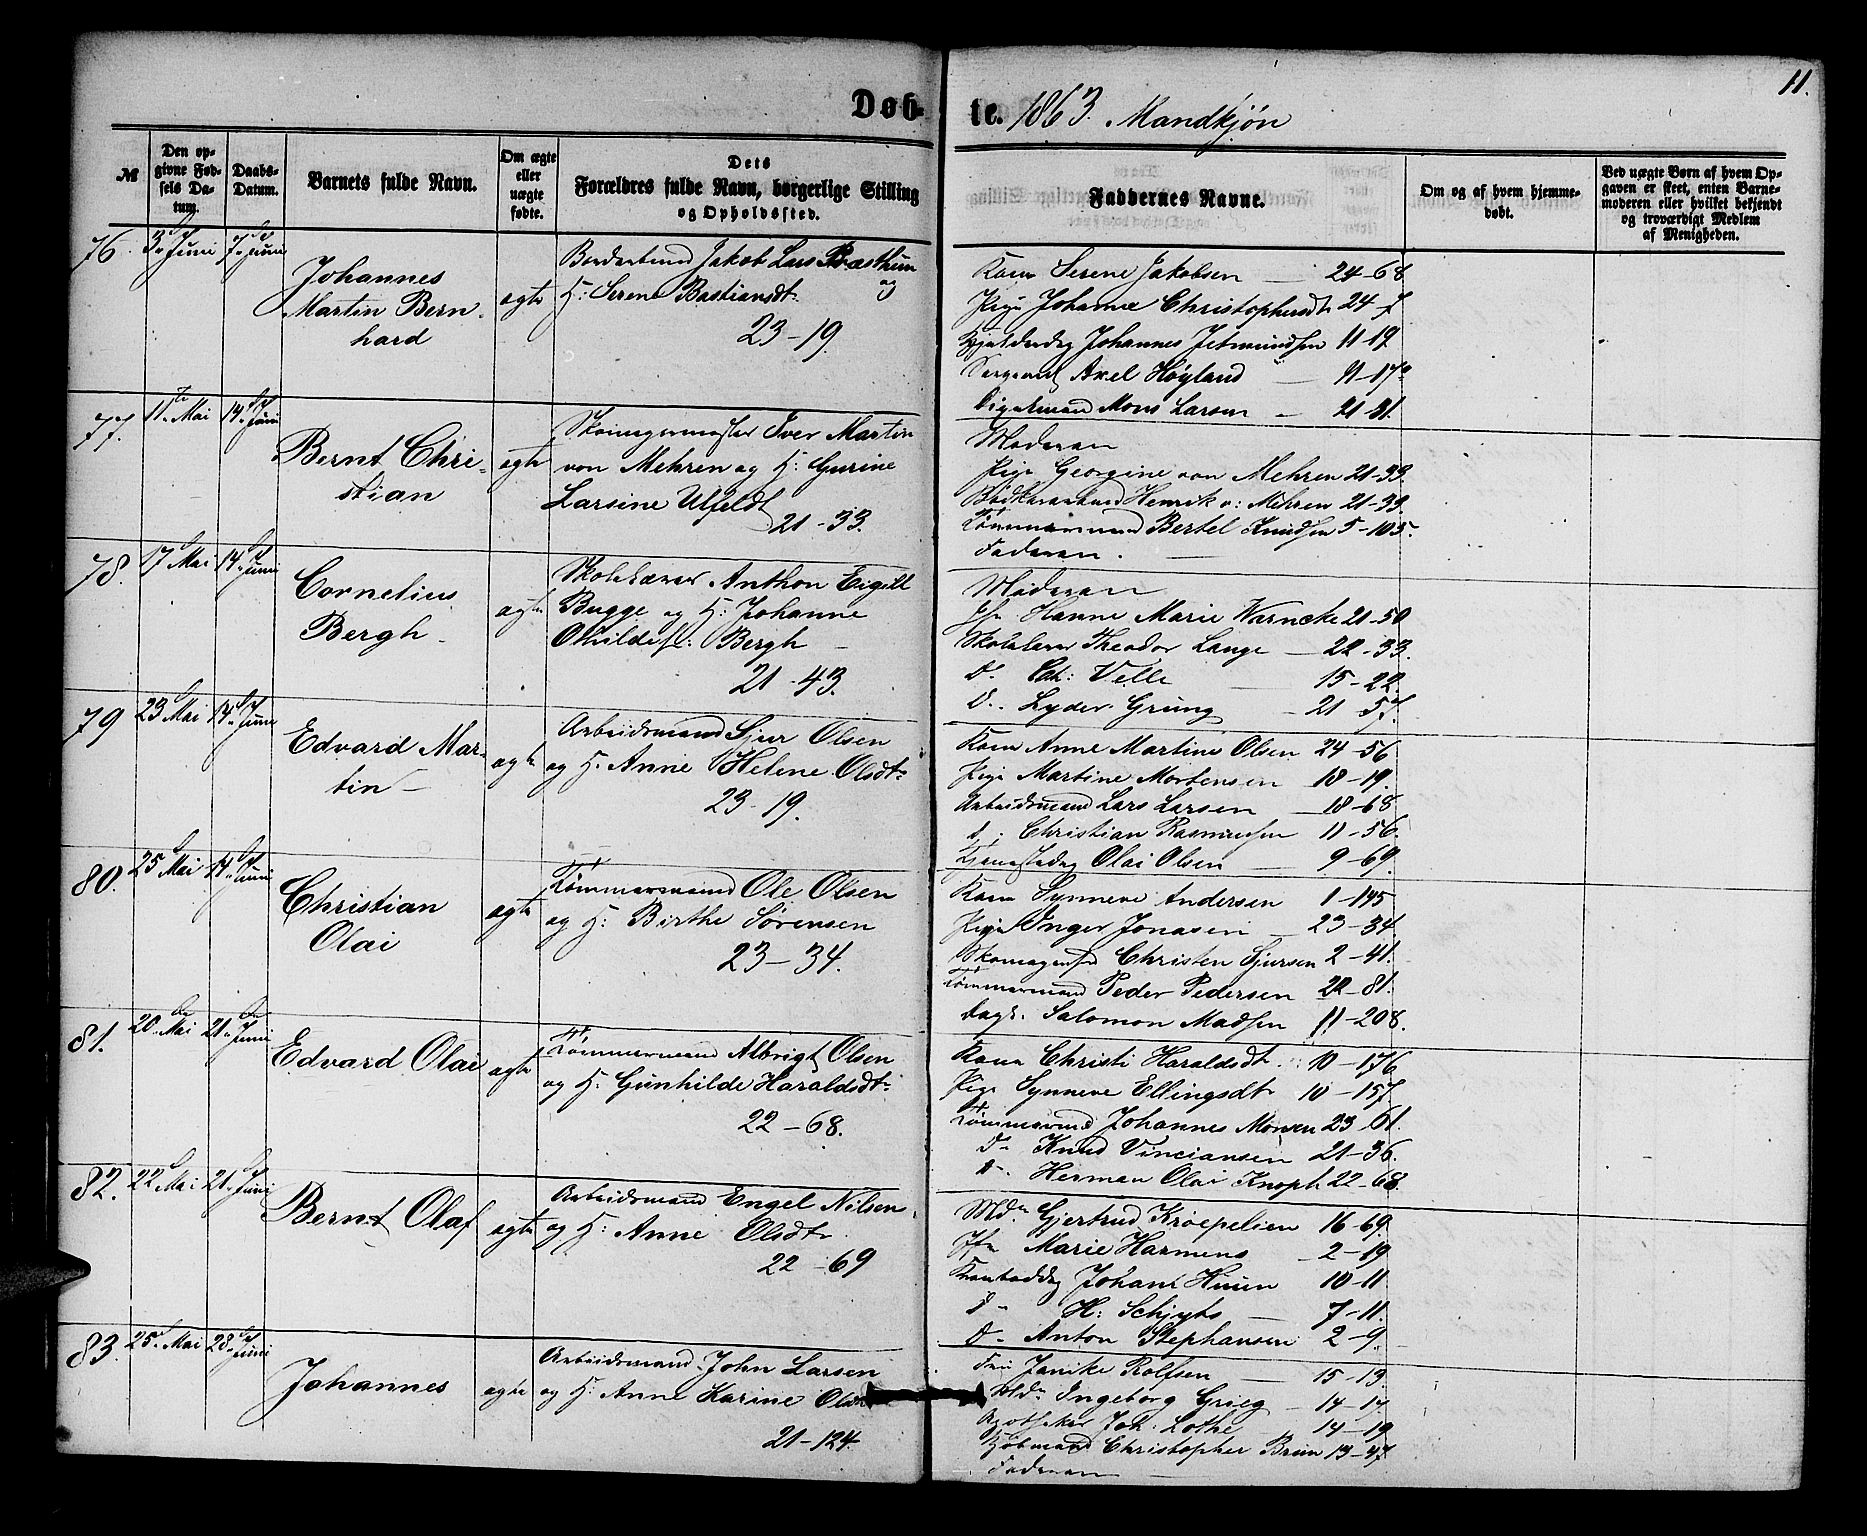 11.
Døb-
te. 1863. Mandkjøn
№
Den op-
givne Fød-
sels Da-
tum.
Daabs-
Datum.
Barnets fulde Navn.
Om ægte
eller
uægte
fødte.
Dets
Forældres fulde Navn, borgerlige Stilling
og Opholdssted.
Faddernes Navne.
Om og af hvem hjemme-
døbt.
Ved uægte Børn af hvem Op-
gaven er skeet, enten Barne-
moderen eller hvilket bekjendt
og troværdigt Medlem
af Menigheden.
76. 3de Juni 7de Juni
Johannes
Martin Bern-
hard
ægte
Jakob Lars
og
K: Serene Bastiansdtr
23-19.
Kone Serene Jakobsen 24-68
Pige Johanne Christophersdtr 24-7
Johannes Jetmundsen 11-19
Sergeant Axel Høyland 11-17
Mons Larsen 21-31.
77. 11te Mai 14de Juni
Bernt Chri-
stian
ægte
Skomagermester Iver Martin
von Mehren og K: Gurine
Larsine Ulfeldt
21-33.
Moderen
Pige Georgine von Mehren 21-33
Henrik v: Mehren 21-33
Tømmermand Bertel Knudsen 5-105.
Faderen.
78. 17de Mai 14de Juni
Cornelius
Bergh
ægte
Skolelærer Anthon Eigill
Bugge og K: Johanne
Othilde f: Bergh
21-43.
Moderen
Jfr Hanne Marie Warncke 21-50
Skolelærer Theodor Lange 22-33.
Do Chr: Velle 15-22.
Do Lyder Grung 21-57.
79 23de Mai 14de Juni
Edvard Mar-
tin
ægte
Arbeidsmand Sjur Olsen
og K. Anne Helene Olsdtr
23-19.
Kone Anne Martine Olsen 24-56
Pige Martine Mortensen 18-19.
Arbeidsmand Lars Larsen 18-68
do. Christian Rasmussen 11-56.
Olai Olsen 9-69.
80. 25de Mai 14de Juni
Christian
Olai
ægte
Tømmermand Ole Olsen
og K: Birthe Sørensen
23-34.
Kone Synneve Andersen 1-195
Pige Inger Jonasen 23-34.
Christen Sjursen 2-41.
Tømmermand Peder Pedersen 22-81.
Salomon Madsen 11-208.
81. 20de Mai 21de Juni
Edvard Olai
ægte
Tømmermand Albrigt Olsen
og K. Gunhilde Haraldsdtr
22-68.
Kone Christi Haraldsdtr 10-176
Pige Synneve Ellingsdtr 10-157
Tømmermd Johannes Monsen 23-61.
do Knud Vinciansen 21-36.
do. Herman Olai Knoph 22-68.
82. 22de Mai 21de Juni
Bernt Olaf
ægte
Arbeidsmand Engel Nilsen
og K: Anne Olsdtr
22-69
Mdm Gjertrud Krøepelien 16-69.
Jfr Marie Harmens 2-19
Johan Hiien 10-11
do H: Schjøts 7-11.
do Anton Stephansen 2-9.
83. 25de Mai 28de Juni
Johannes
ægte
Arbeidsmand John Larsen
og K. Anne Karine
21-124.
Janike Rolfsen 15-13
Mdm Ingeborg Grieg 14-17.
Apotheker Joh. Lothe 14-19
Kjøbmand Christopher Brun 13-47
Faderen